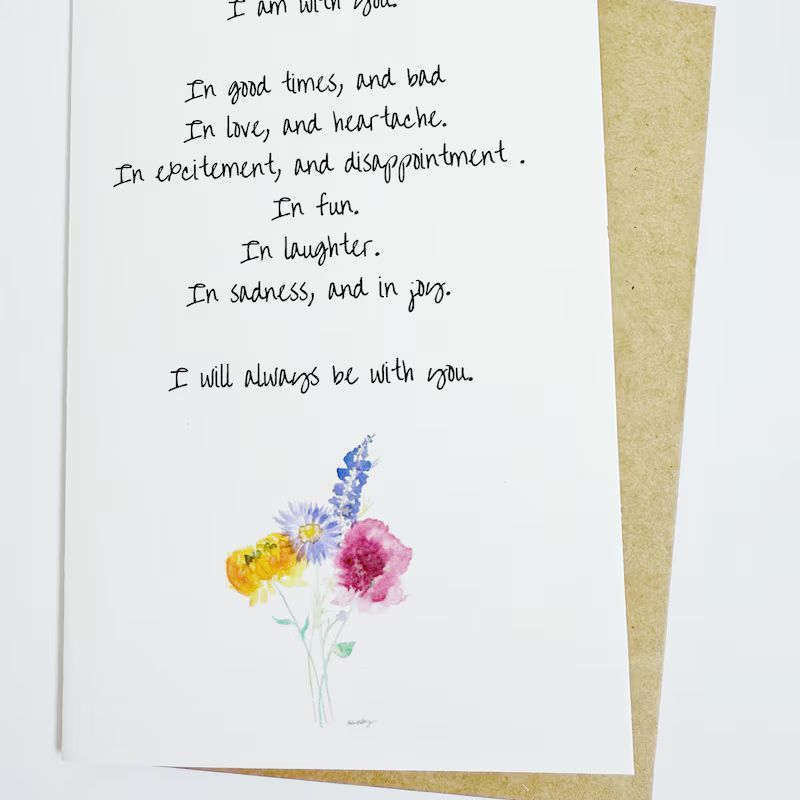 I am with you.
In good times, and bad
In love, and heartache.
In excitement, and disappointment .
In fun.
In laughter.
In sadness, and in joy.
I will always be with you.